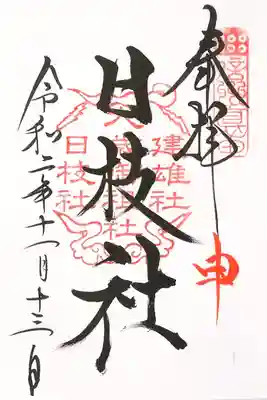 奉拝
申
日枝社
建雄社
日枝社
令和二年十一月十三日